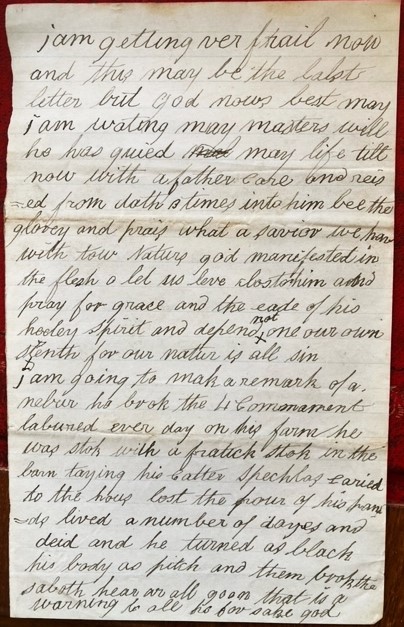 jam getting ver frail now
and this may be the labst
letter but god nows best may
jam wating may masters will
he has guied may life till
now with a father care and reis
=ed from dath s times into him bee the
glovey and prais what a savior we hav
with tow Naturs god manifested in
the flesh o let us leve clostohim and
pray for grace and the eade of his
hooley spirit and depend not one our own
stenth for our natur is all sin
jam going to mak a remark of a
nebur ho book the 4 Commament
laboured ever day on his farm he
was stok with a fratick stok in the
barn taying his Catter Spechlas caried
to the hous lost the pour of his pans
=ds lived a number of dayes and
deid and he turned as black
his body as pitch and them book the
saboth hear ar all goon that is a
warning to all ho for sake god